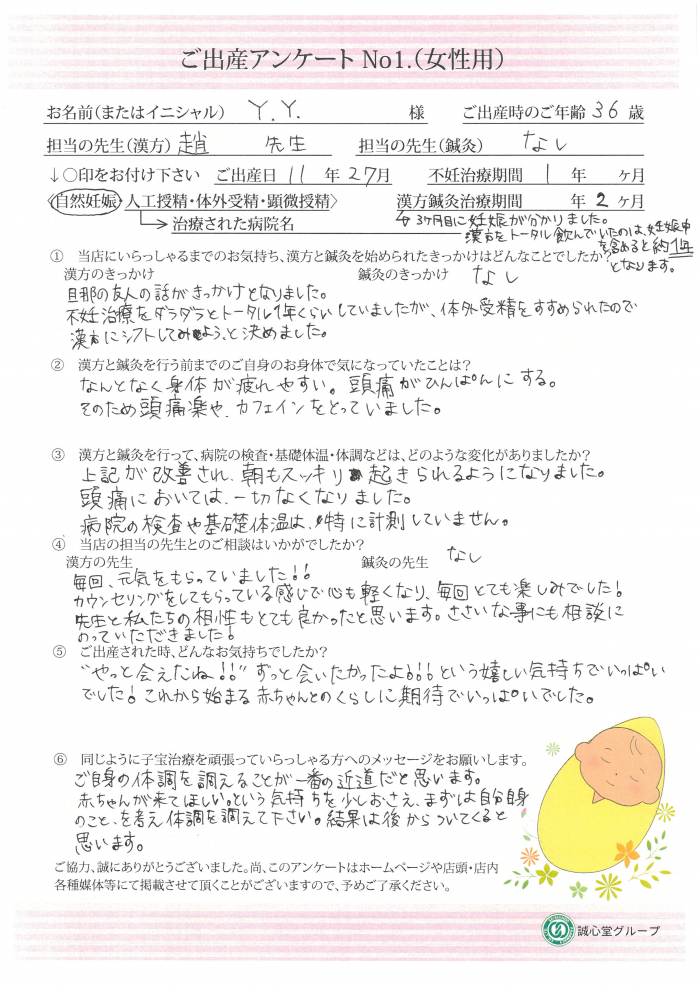 ご出産アンケート No1.(女性用)
お名前(またはイニシャル) Y.Y. 様 ご出産時のご年齢 36 歳
担当の先生(漢方) 趙 先生 担当の先生(鍼灸) なし
↓○印をお付け下さい ご出産日 11 年 27月 不妊治療期間 1 年 ヶ月
〈自然妊娠・人工授精・体外受精・顕微授精〉 漢方鍼灸治療期間 年 2 ヶ月
→治療された病院名
↳3ヶ月目に妊娠が分かりました。
漢方をトータル飲んでいたのは、妊娠中
を含めると約1年
となります。
① 当店にいらっしゃるまでのお気持ち、漢方と鍼灸を始められたきっかけはどんなことでしたか?
漢方のきっかけ 鍼灸のきっかけ なし
旦那の友人の話がきっかけとなりました。
不妊治療をダラダラとトータル1年くらいしていましたが、体外受精をすすめられたので
漢方にシフトしてみよう、と決めました。
② 漢方と鍼灸を行う前までのご自身のお身体で気になっていたことは?
なんとなく身体が疲れやすい。頭痛がひんぱんにする。
そのため頭痛薬や、カフェインをとっていました。
③ 漢方と鍼灸を行って、病院の検査・基礎体温・体調などは、どのような変化がありましたか?
上記が改善され、朝もスッキリ起きられるようになりました。
頭痛においては、一切なくなりました。
病院の検査や基礎体温は、特に計測していません。
④ 当店の担当の先生とのご相談はいかがでしたか?
漢方の先生 鍼灸の先生 なし
毎回、元気をもらっていました!!
カウンセリングをしてもらっている感じで心も軽くなり、毎回とても楽しみでした!
先生と私たちの相性もとても良かったと思います。ささいな事にも相談に
のっていただきました!
⑤ ご出産された時、どんなお気持ちでしたか?
"やっと会えたね!!" ずっと会いたかったよ!!!という嬉しい気持ちでいっぱい
でした!これから始まる赤ちゃんとのくらしに期待でいっぱいでした。
⑥ 同じように子宝治療を頑張っていらっしゃる方へのメッセージをお願いします。
ご自身の体調を調えることが一番の近道だと思います。
赤ちゃんが来てほしい。という気持ちを少しおさえ、まずは自分自身
のこと、を考え体調を調えて下さい。結果は後からついてくると
思います。
ご協力、誠にありがとうございました。尚、このアンケートはホームページや店頭・店内
各種媒体等にて掲載させて頂くことがございますので、予めご了承ください。
誠心堂グループ